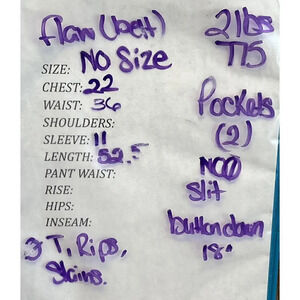 flaw (belt)
SIZE: No Size
CHEST: 22
WAIST: 36
SHOULDERS:
SLEEVE: 11
LENGTH: 52.5
PANT WAIST:
RISE:
HIPS:
INSEAM:
T, Rips,
Stains.
2 lbs
Pockets
(2)
NO
Slit
button down
18"